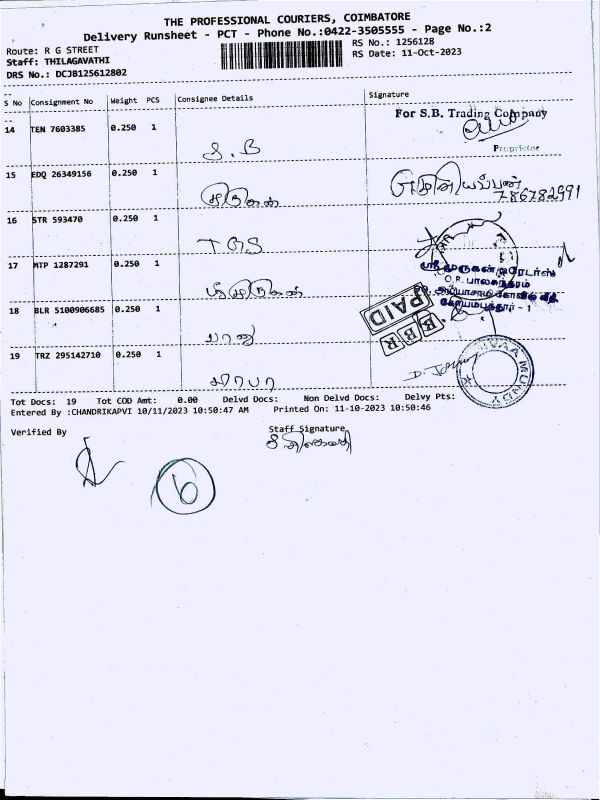 THE PROFESSIONAL COURIERS, COIMBATORE
Delivery Runsheet - PCT - Phone No.:0422-3505555 - Page No.:2
Route: R G STREET
RS No.: 1256128
Staff: THILAGAVATHI
RS Date: 11-Oct-2023
DRS No.: DCJB125612802
S No Consignment No Weight PCS Consignee Details Signature
14 TEN 7603385 0.250 1 S.B For S.B. Trading Company
Proprietor
15 EDQ 26349156 0.250 1 முருகன்
16 STR 593470 0.250 1 TGS
17 MTP 1287291 0.250 1 ஸ்ரீமுருகன் ஸ்ரீ முருகன் டிரேடர்ஸ்
O.R. பாலசுந்தரம்
கோயமுத்தூர் - 1
18 BLR 5100906685 0.250 1 பானு
PAID
BBR
19 TRZ 295142710 0.250 1
Tot Docs: 19 Tot COD Amt: 0.00 Delvd Docs: Non Delvd Docs: Delvy Pts:
Entered By :CHANDRIKAPVI 10/11/2023 10:50:47 AM Printed On: 11-10-2023 10:50:46
Verified By Staff Signature
6